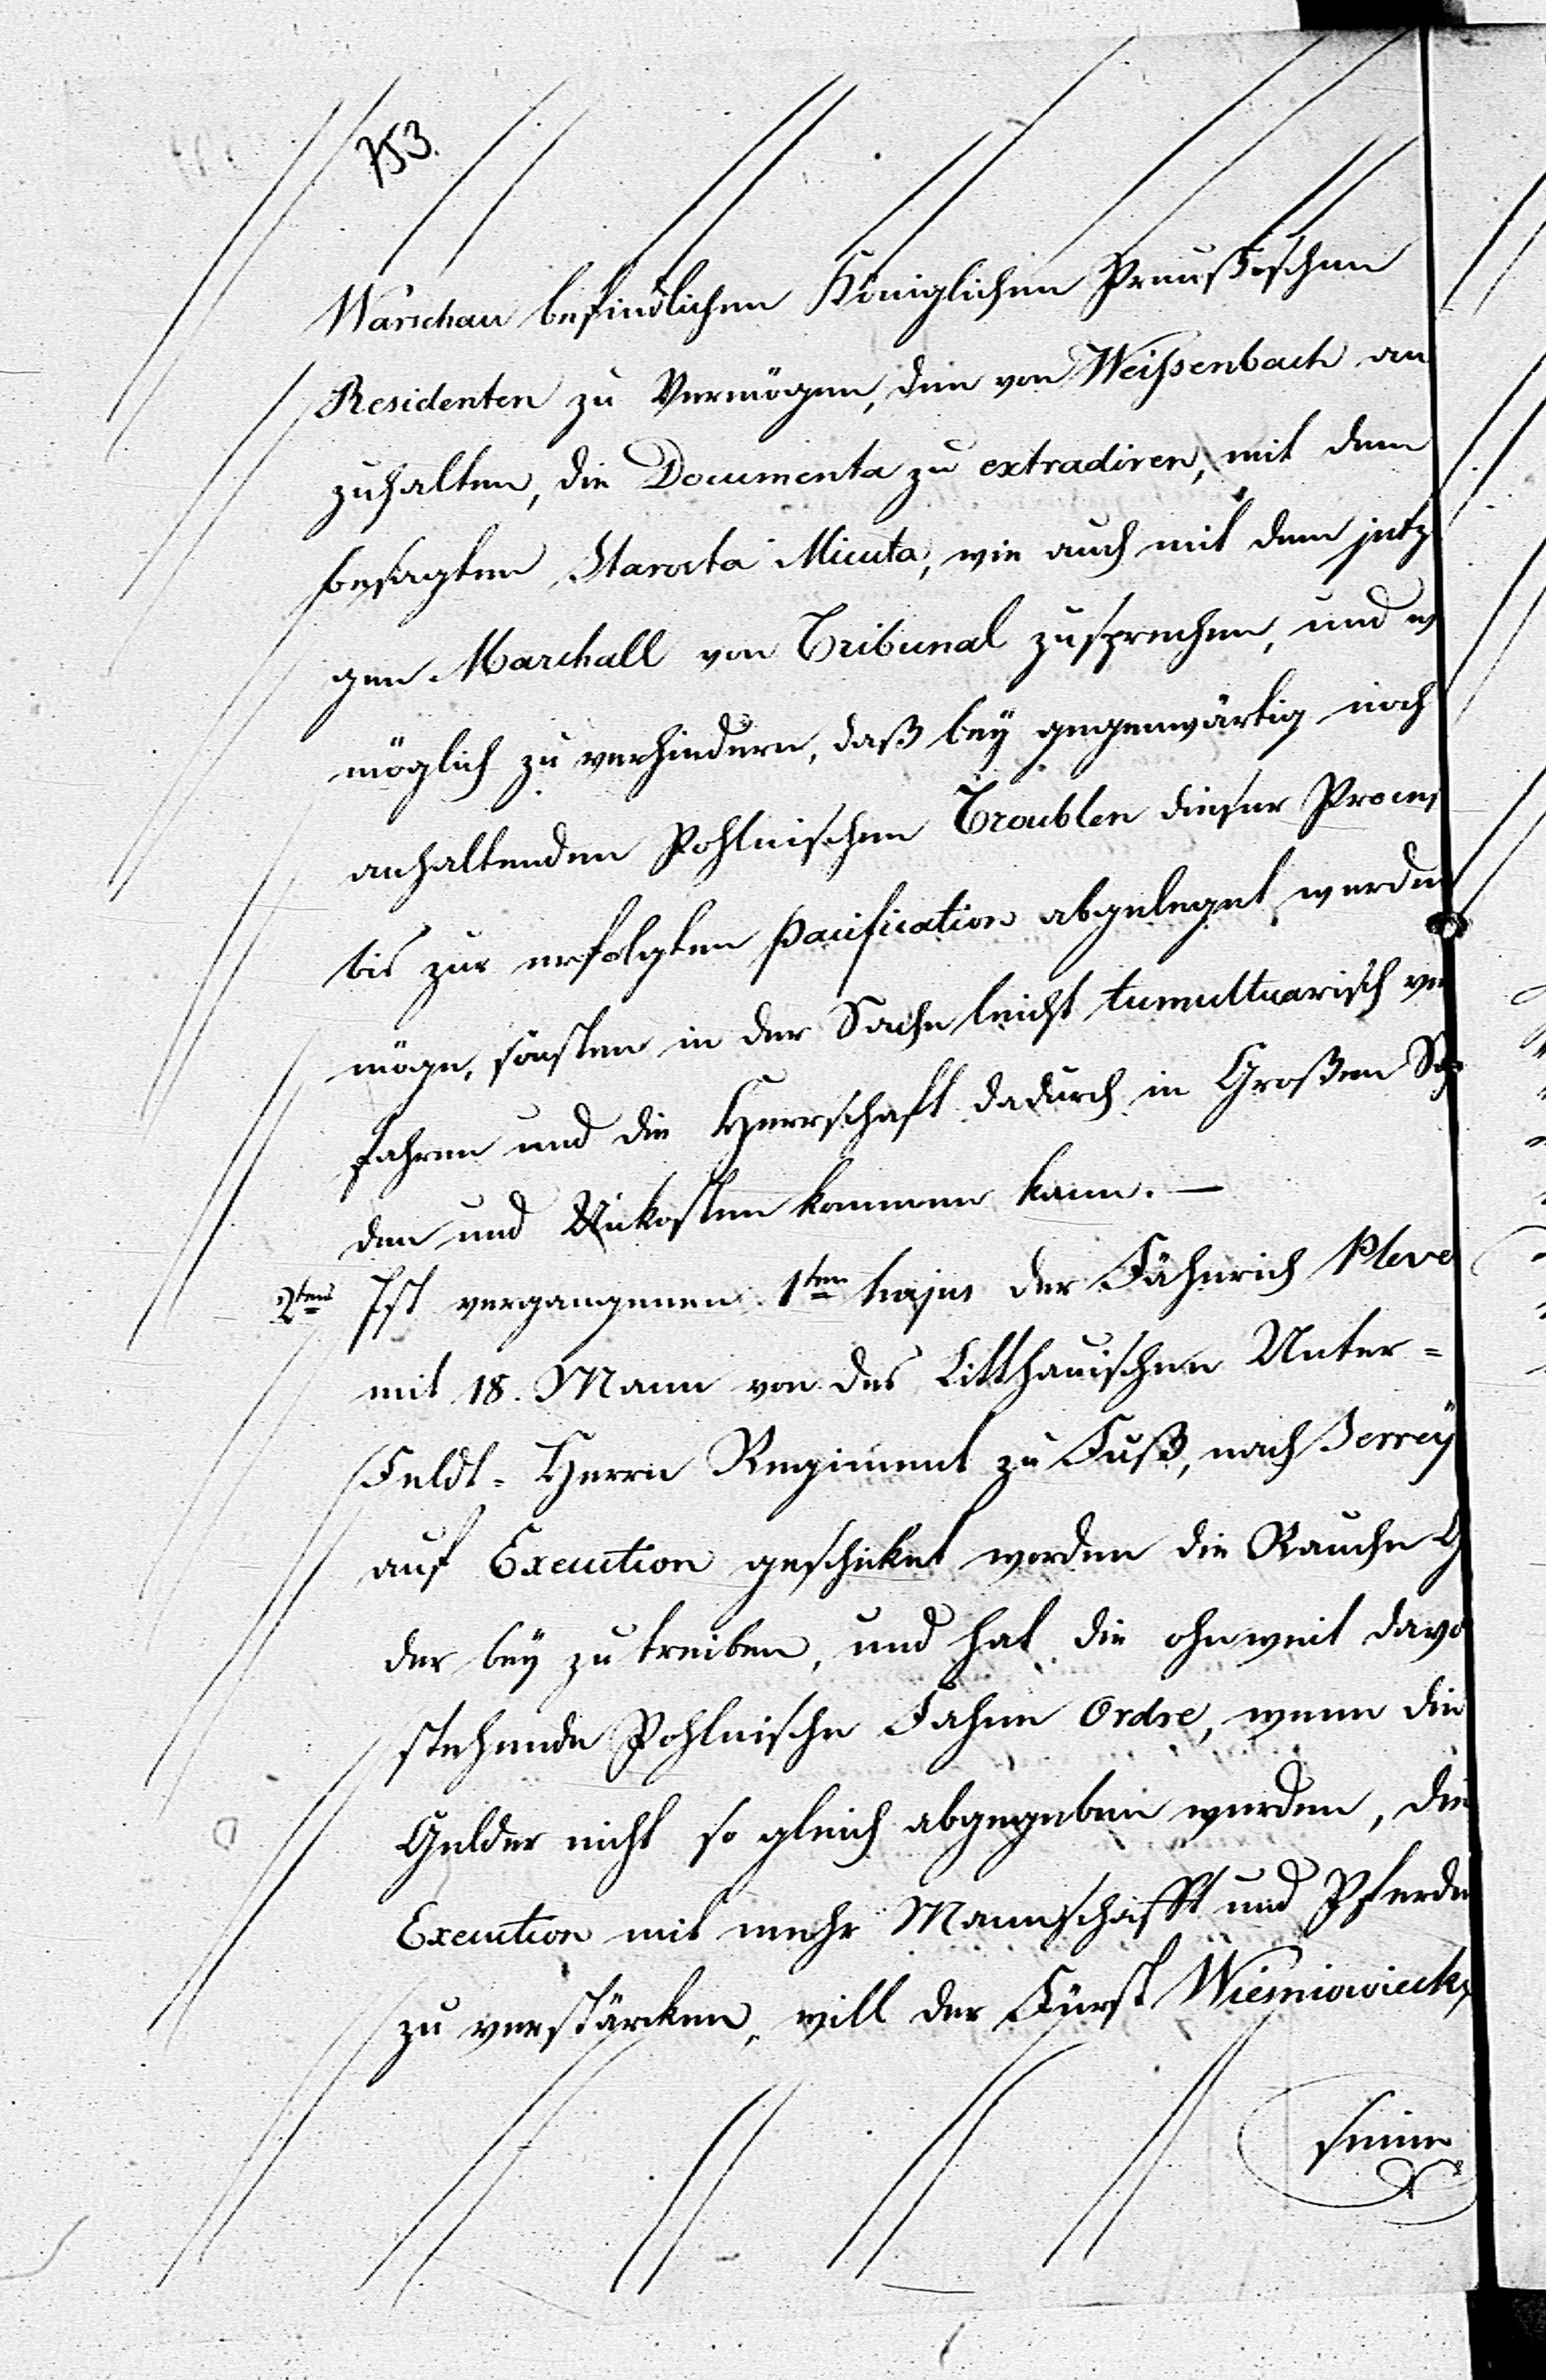 753.
Warschau befindlichen Königlichen Preußischen
Residenten zu vermögen, den von Weißenbach an
zuhalten, die Documenta zu extradiren, mit dem
besagten Starosta Micuta, wie auch mit dem jetzi
gen Marchall von Tribunal zu sprechen, und wo
möglich zu verhindern, daß bey gegenwärtig noch
anhaltenden Pohlnischen Troublen dieser Proces
bis zur erfolgten Pacification abgeleget werden
möge, sonsten in der Sache leicht tumultuarisch ver
fahren und die Herrschaft dadurch in Großen Sch
den und Unkosten kommen kann. —
2tens Ist vergangenen 1ten hujus der Fähnrich Pleve
mit 18. Mann von des Litthauischen Unter-
Feldt-Herrn Regiment zu Fuß, nach Serrey
auf Execution geschicket worden die Rauche G
der bey zu treiben, und hat die ohnweit davo
stehende Pohlnische Fahne Ordre, wenn die
Gelder nicht so gleich abgegeben werden, die
Execution mit mehr Mannschafft und Pferde
zu verstärcken, will der Fürst Wiesniowiecky
seine